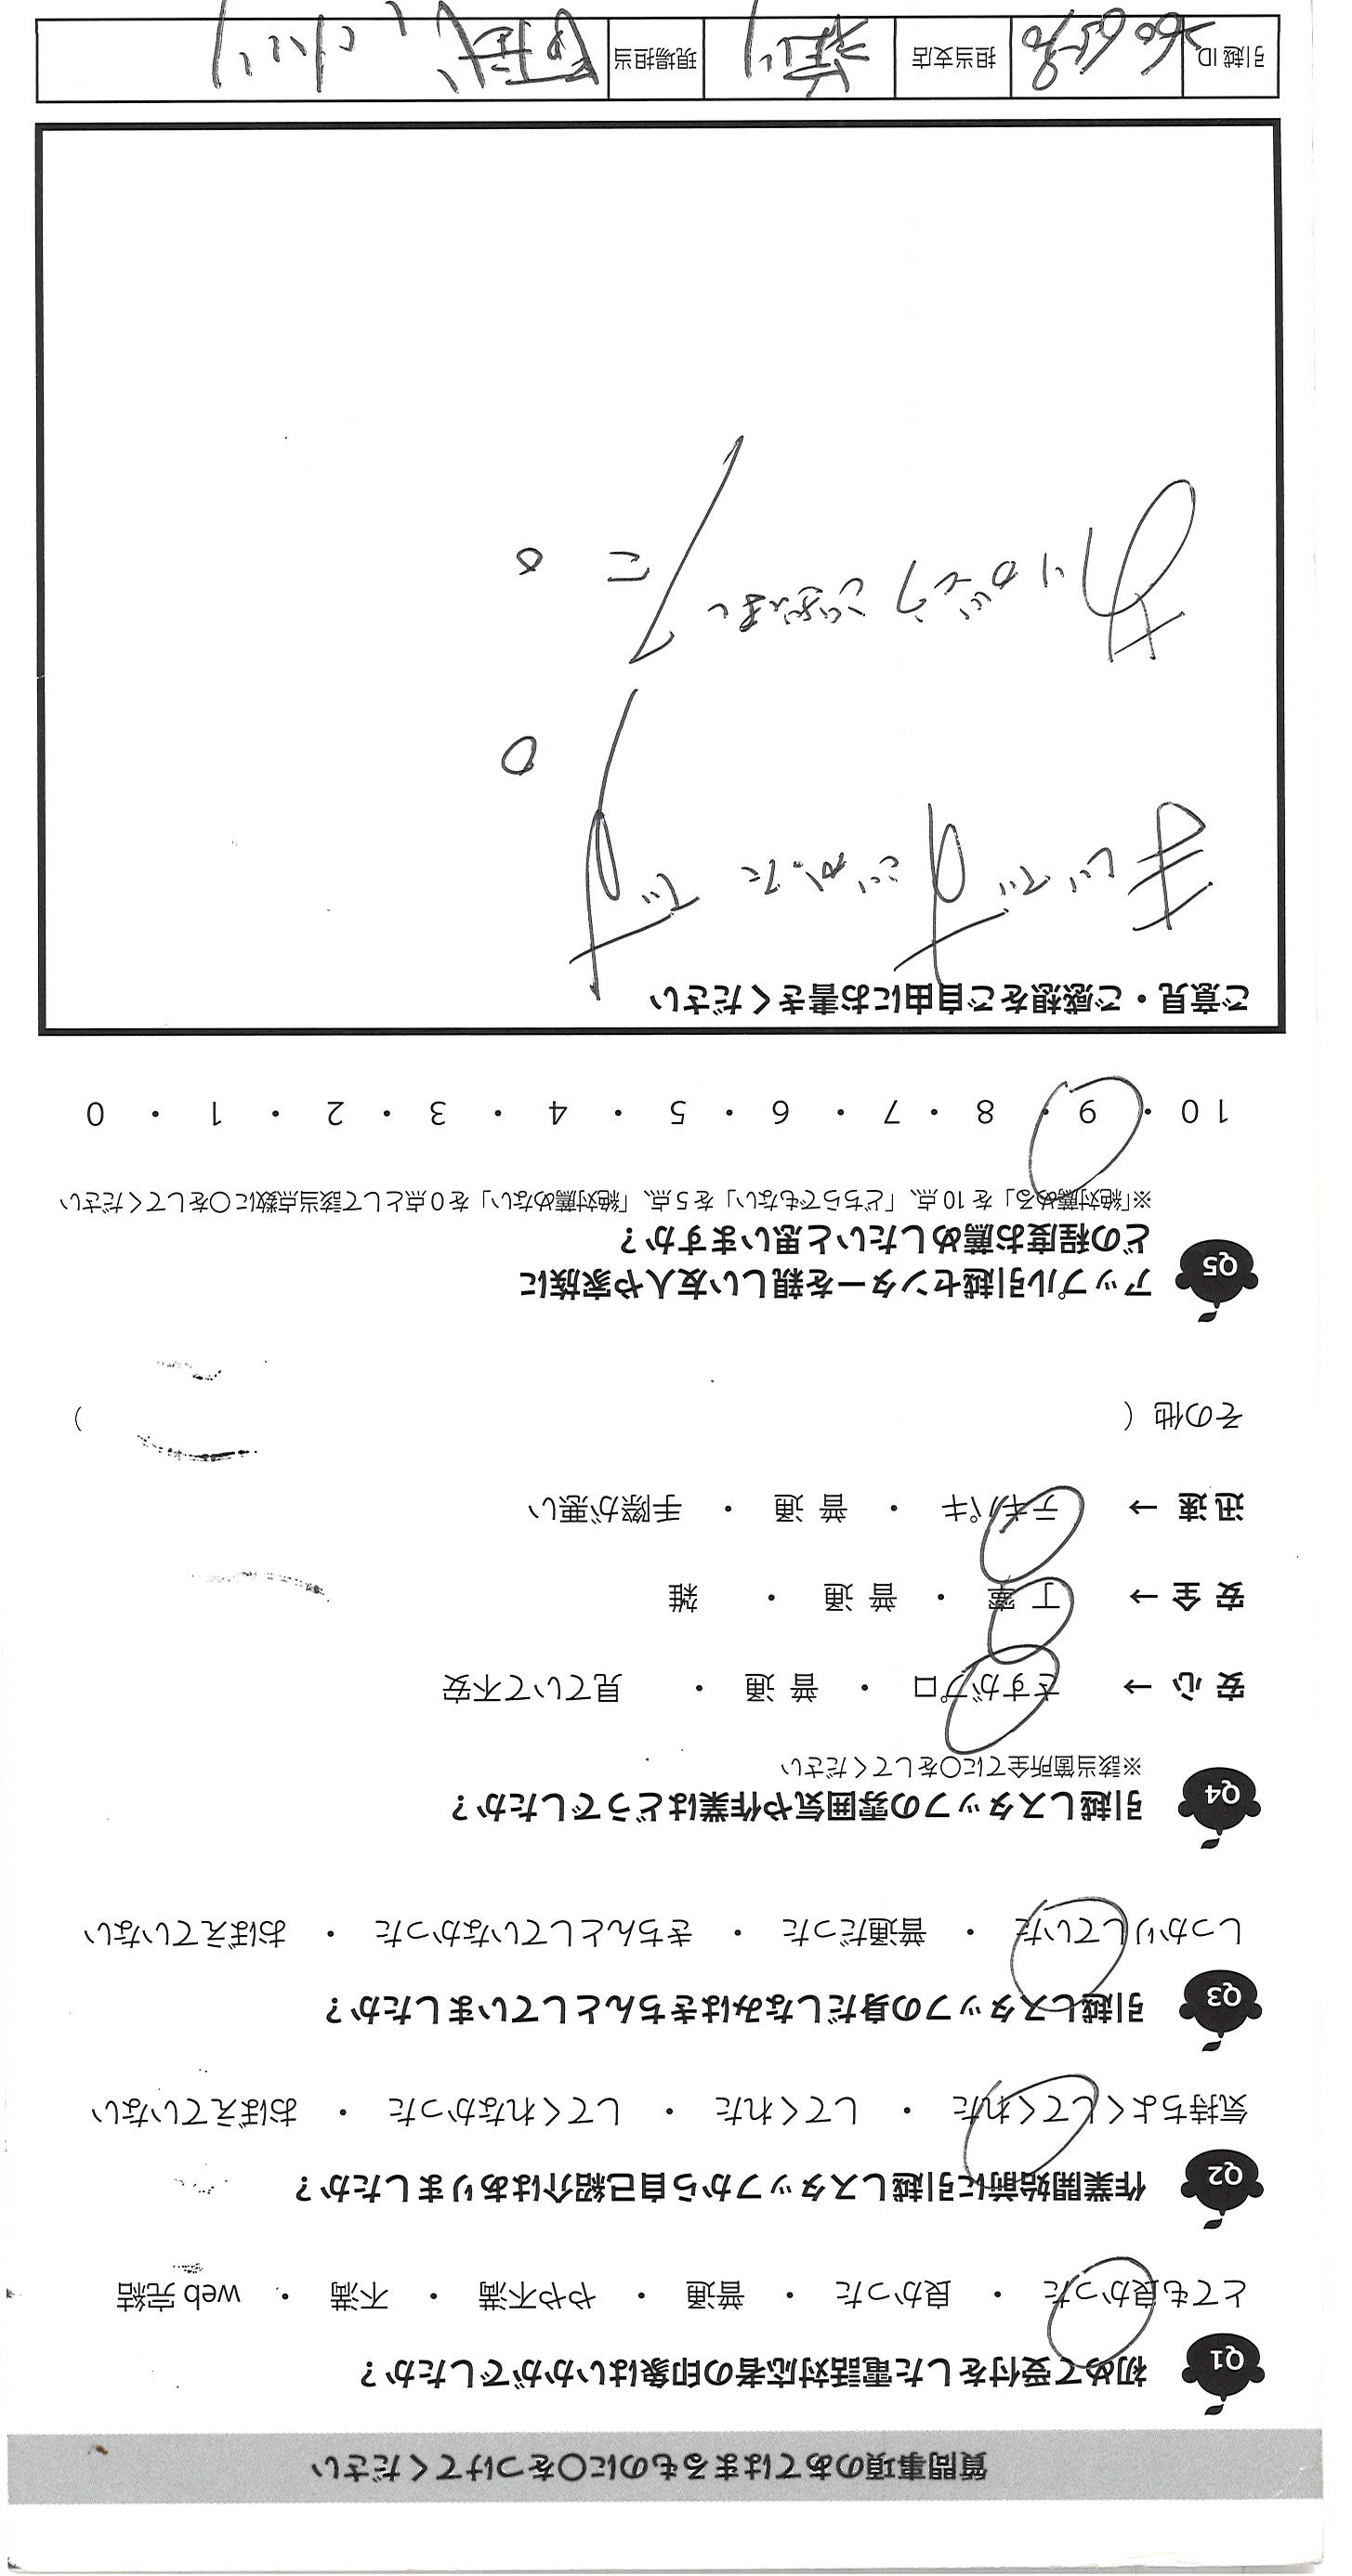 質問事項のあてはまるものに〇をつけてください
Q1 初めて受付をした電話対応者の印象はいかがでしたか？
とても良かった ・ 良かった ・ 普通 ・ やや不満 ・ 不満 ・ web完結
Q2 作業開始前に引越しスタッフから自己紹介はありましたか？
気持ちよくしてくれた ・ してくれた ・ してくれなかった ・ おぼえていない
Q3 引越しスタッフの身だしなみはきちんとしていましたか？
しっかりしていた ・ 普通だった ・ きちんとしていなかった ・ おぼえていない
Q4 引越しスタッフの雰囲気や作業はどうでしたか？
※該当箇所全てに〇をしてください
安心→ さすがプロ ・ 普通 ・ 見ていて不安
安全→ 丁寧 ・ 普通 ・ 雑
迅速→ テキパキ ・ 普通 ・ 手際が悪い
その他（ ）
Q5 アップル引越センターを親しい友人や家族に
どの程度お薦めしたいと思いますか？
※「絶対薦める」を10点、「どちらでもない」を5点、「絶対薦めない」を0点として該当点数に〇をしてください
10 ・ 9 ・ 8 ・ 7 ・ 6 ・ 5 ・ 4 ・ 3 ・ 2 ・ 1 ・ 0
ご意見・ご感想をご自由にお書きください
ありがとうございました。
引越ID 担当支店 現場担当